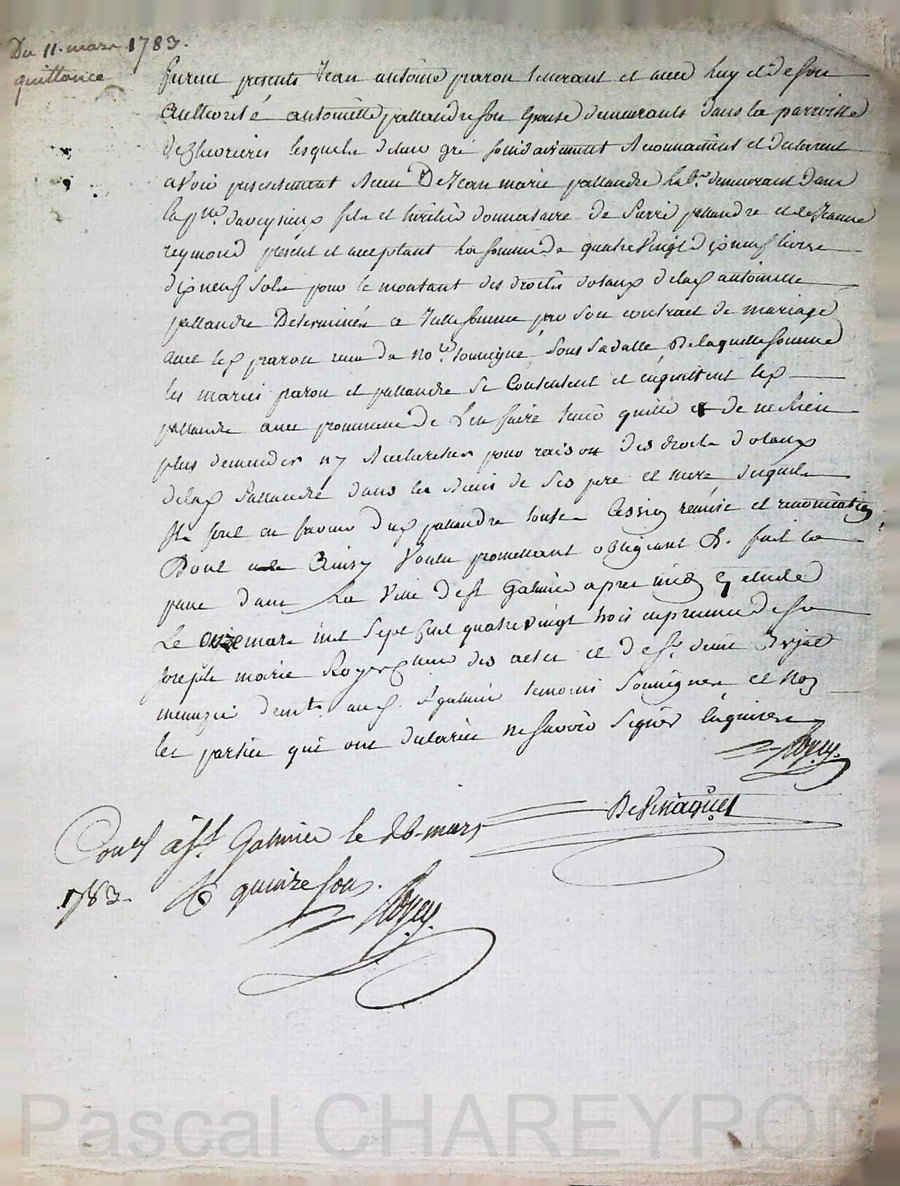 Du 11. mars 1783.
quittance
furent presents Jean antoine paron et avec luy et de son
authorité antoinette pallandre son Epouse demeurants dans la parroisse
lesquels de leur gré solidairement Reconnaissent et declarent
avoir presentement Receu De Jean marie pallandre demeurant dans
la fils et heritier donnataire de Pierre pallandre et de Jeanne
reymond présent et acceptant La somme de quatre vingt dix neuf livres
dix neuf sols pour le montant des droits dotaux de lad antoinette
pallandre Determinés a Telle somme par son contrat de mariage
avec led paron recu de No.re soussigné sous sa datte De laquelle somme
les mariés paron et pallandre se Contentent et en quittent led
pallandre avec promesse de l'en faire tenir quitte & de ne Rien
plus demander ny Rechercher pour raison des droits dotaux
de lad Pallandre dans les Biens de ses pere et mere desquels
Ils font en faveur dud pallandre toute Cession remise et renonciation
Dont acte Ainsy Voulu promettant obligeant &. fait et
passé dans La Ville de St Galmier apres midy Etude
Le onze mars mil sept Cent quatre vingt trois en presence de sr
Joseph marie Royer des actes et de
menuzier demt. aud St galmier temoins soussignés et non
les parties qui ont declarée ne savoir signer Enquises
Royer.
Con.lé à St Galmier le 26 mars
1783. R quinze sous.
Royer.
Pascal CHAREYRON